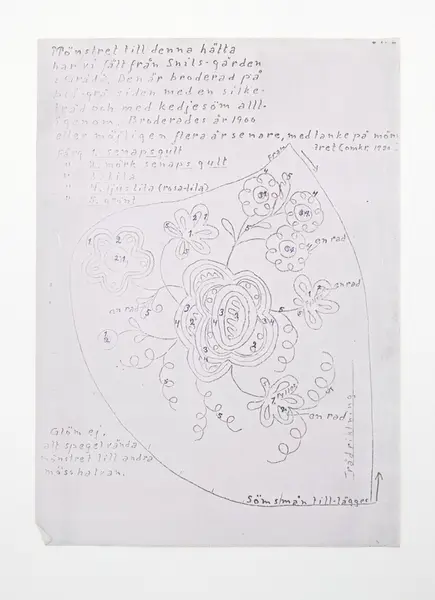 Mönstret till denna hätta
har vi fått från Snils-gården
Den är broderad på
blå-grå siden med en silke-
tråd och med kedjesöm allt-
igenom. Broderades år 1900
eller möjligen flera år senare, med tanke på mön-
tret
färg 1. senapsgult
" 2. mörk senaps gult
" 3. lila
" 4. ljuslila (rosa-lila)
" 5. grönt
Fram
en rad
en rad
en rad
en rad
Trådriktning
Glöm ej,
att spegelvända
mönstret till andra
mösshalvan.
Sömsmån till-lägges